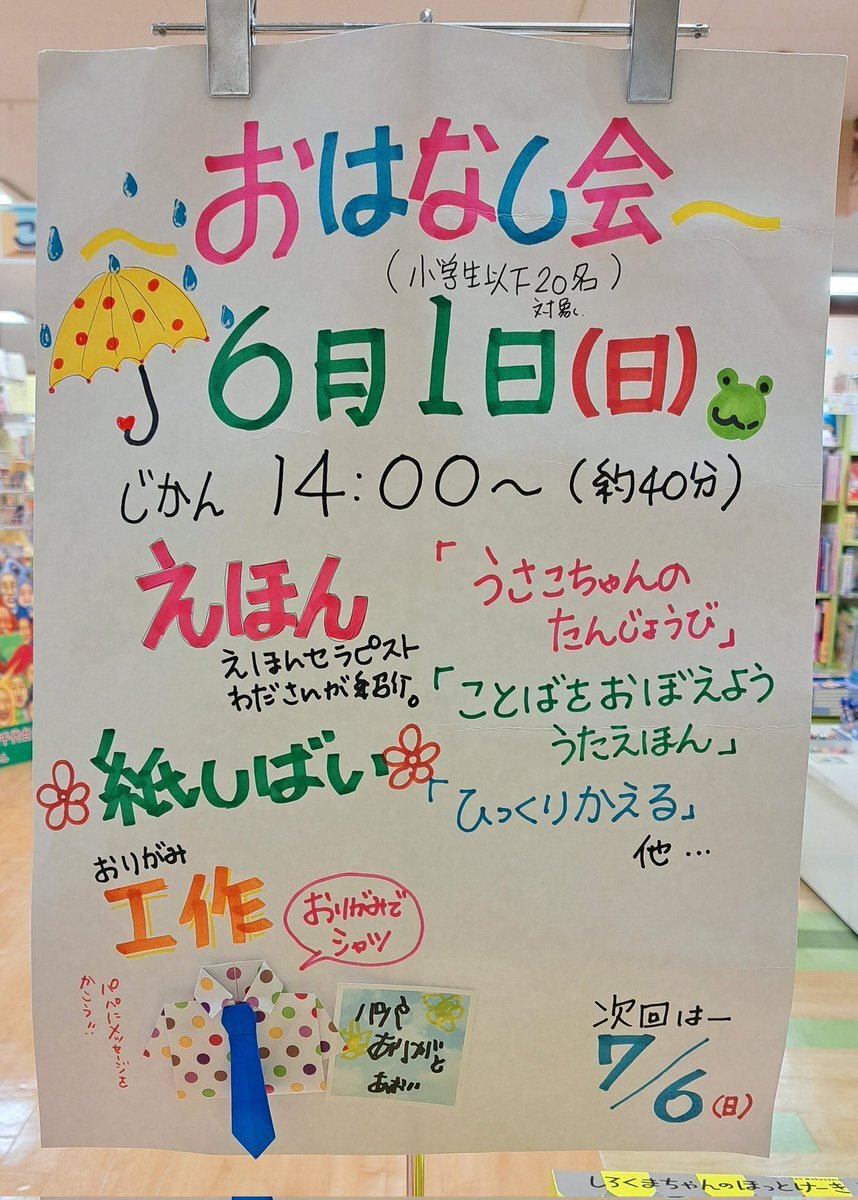 ～おはなし会～
(小学生以下20名)
対象
6月1日(日)
じかん 14:00～(約40分)
えほん
えほんセラピスト
わださんが紹介。
「うさこちゃんの
たんじょうび」
「ことばをおぼえよう
うたえほん」
「ひっくりかえる」
他…
紙しばい
おりがみ
工作
おりがみで
シャツ
パパにメッセージを
かこう!!
パパ
ありがと
次回はー
7/6(日)
しろくまちゃんのほっとけーき